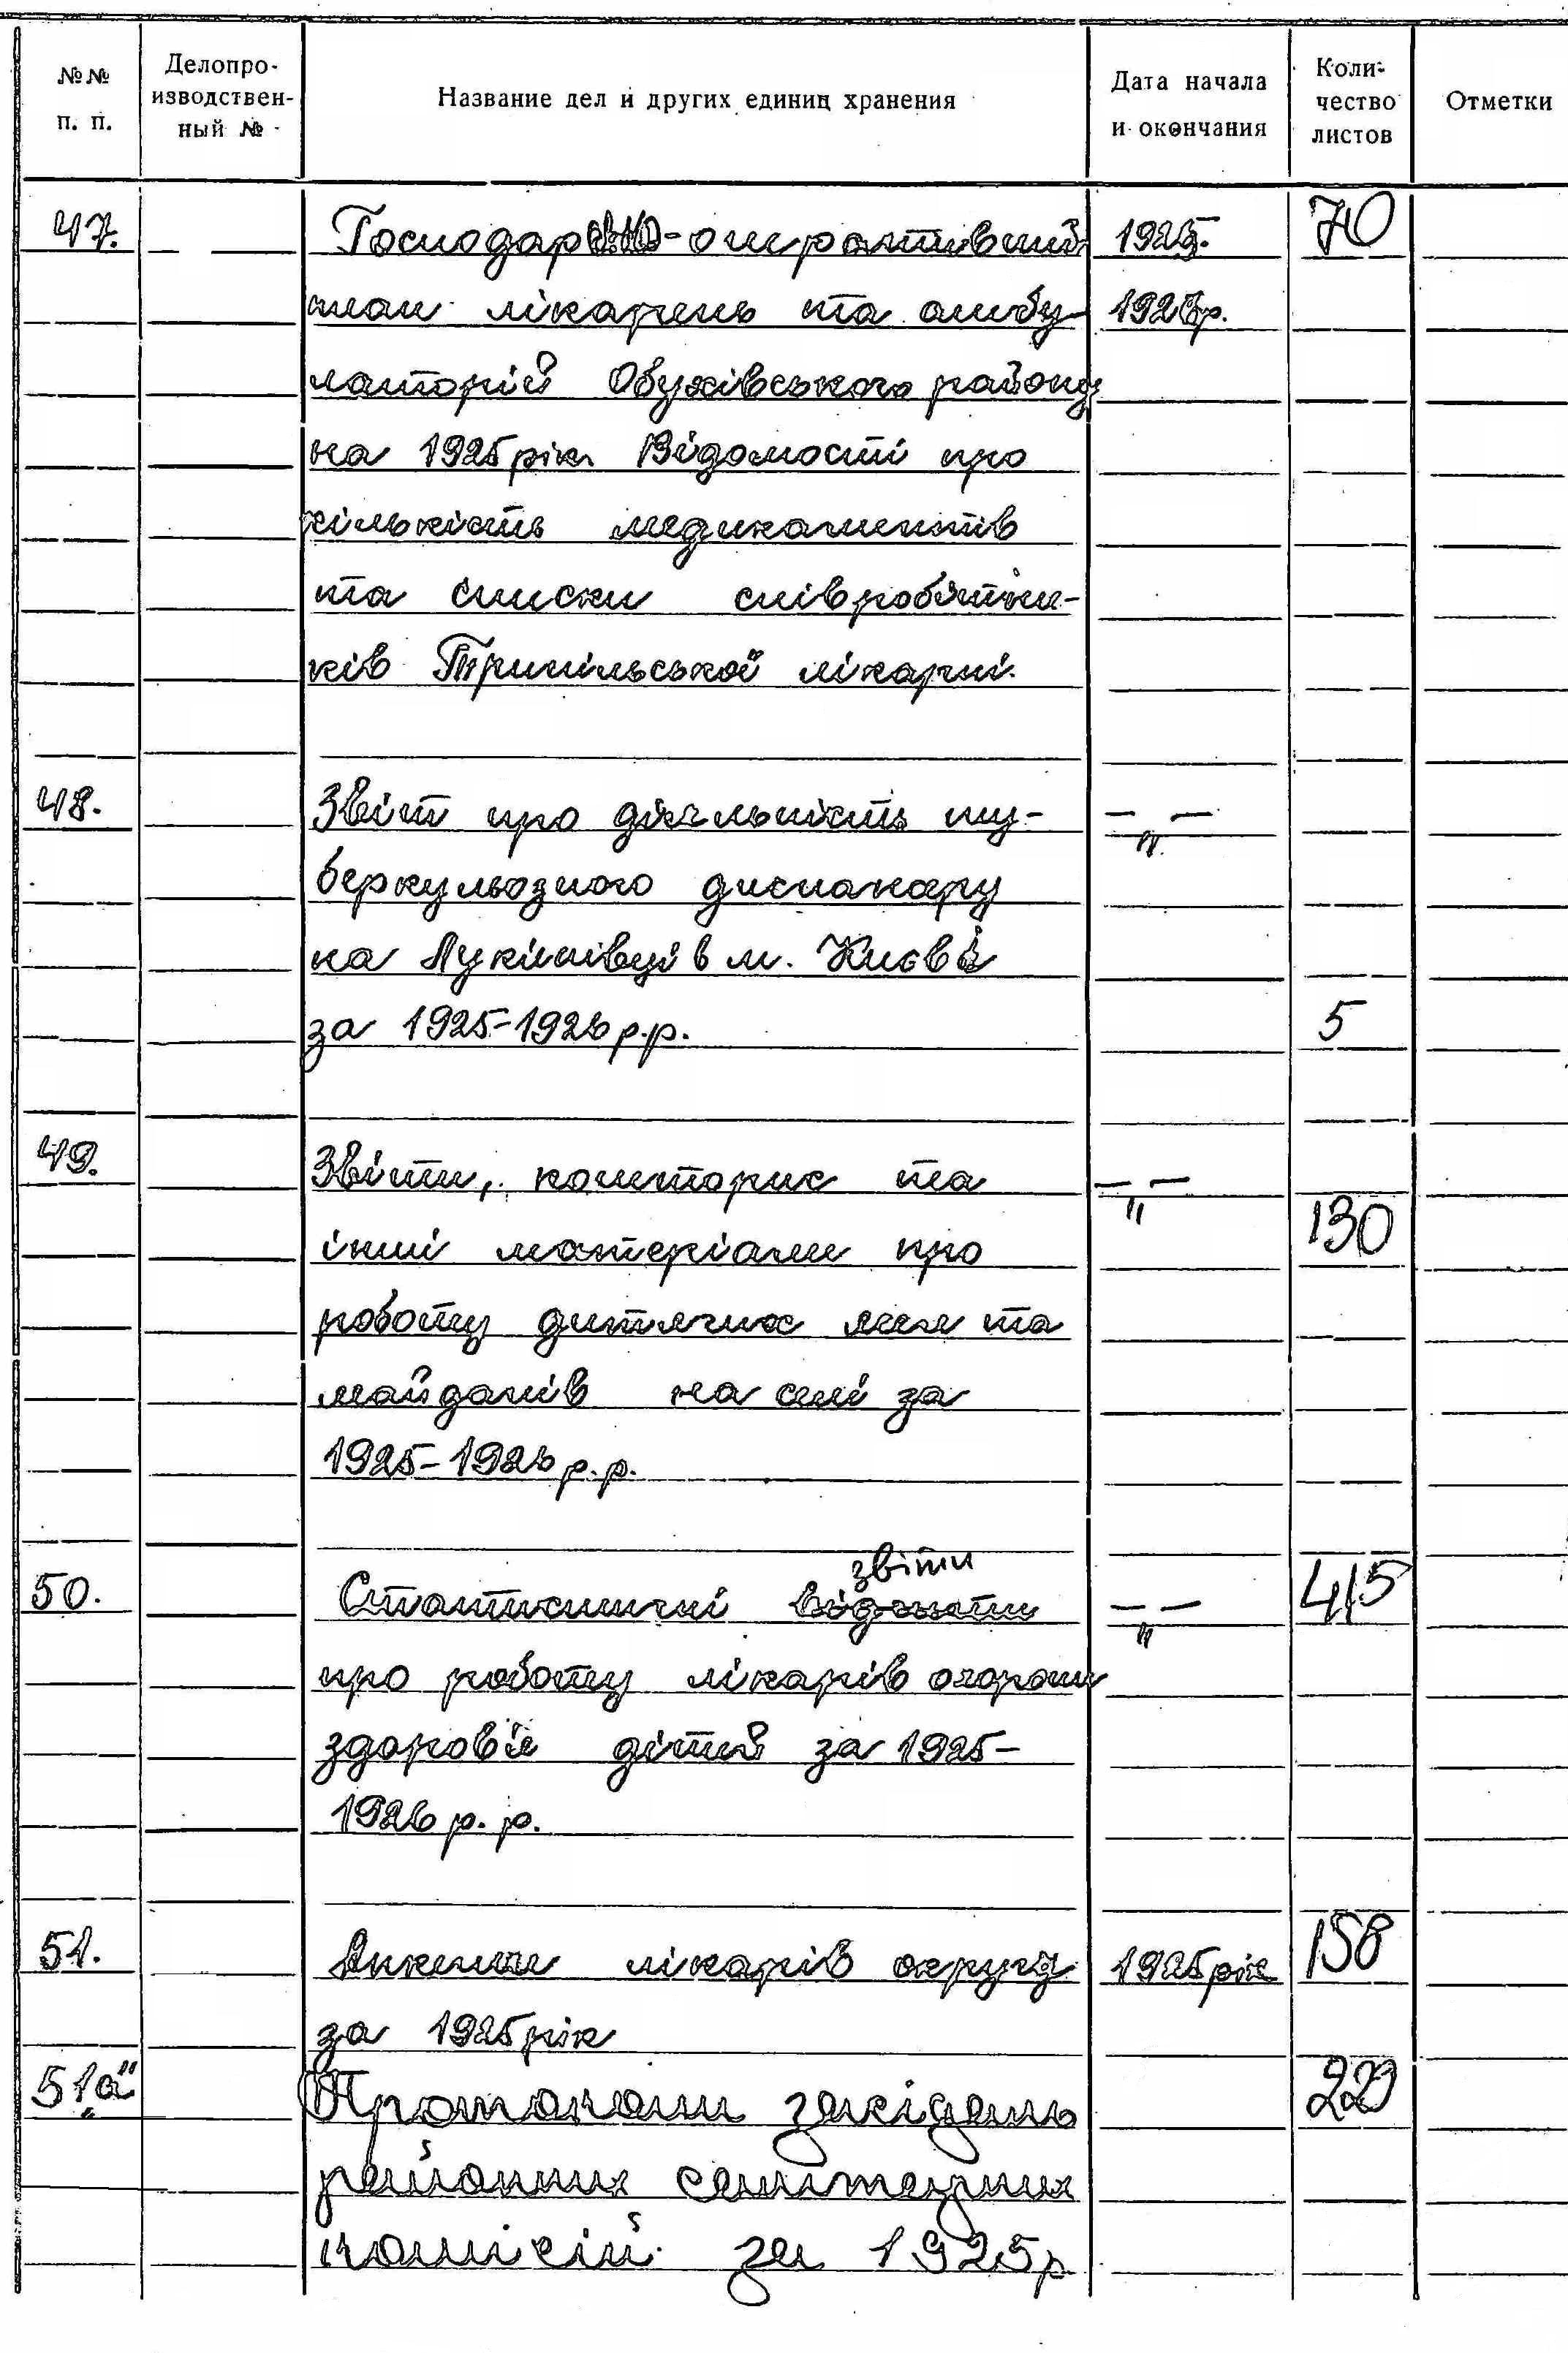 №№ п. п.
Делопро-
изводствен-
ный №
Название дел и других единиц хранения
Дата начала
и окончания
Коли-
чество
листов
Отметки
47. Господар -оперативний 1925- 70
план лікарень та амбу- 1926р.
латорій Обухівського району
на 1925 рік. Відомості про
кількість медикаментів
та списки співробітни-
ків Трипільської лікарні.
48. Звіт про діяльність ту- — " —
беркульозного диспанеру
на Лукянівці в м. Києві
за 1925-1926 р.р. 5
49. Звіти, кошторис та — " —
інші матеріали про 130
роботу дитячих ясел та
майданів на селі за
1925-1926 р.р.
звіти
50. Статистичні відчити — " — 415
про роботу лікарів охорони
здоров'я дітей за 1925-
1926 р. р.
51. Анкети лікарів округи 1925 рік 158
за 1925 рік
51"а" Протоколи засідань 229
районних санітарних
комісій за 1925р